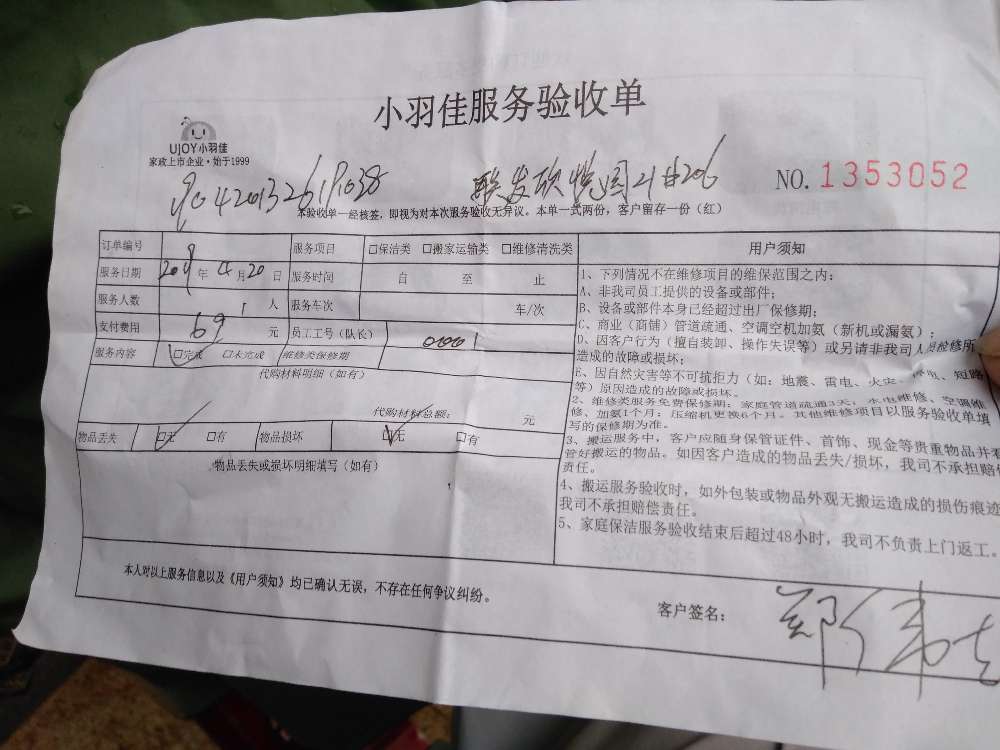 小羽佳服务验收单
UJOY小羽佳
家政上市企业·始于1999
NO. 1353052
本验收单一经核签，即视为对本次服务验收无异议。本单一式两份，客户留存一份（红）
订单编号 服务项目 □保洁类 □搬家运输类 □维修清洗类
服务日期 年 4月20日 服务时间 自 至 止
服务人数 1 人 服务车次 车/次
支付费用 69 元 员工工号（队长） 0001
服务内容 □完成 □未完成 维修类保修期
代购材料明细（如有）
代购材料总额： 元
物品丢失 □无 □有 物品损坏 □无 □有
物品丢失或损坏明细填写（如有）
用户须知
1、下列情况不在维修项目的维保范围之内：
A、非我司员工提供的设备或部件；
B、设备或部件本身已经超过出厂保修期；
C、商业（商铺）管道疏通、空调空机加氨（新机或漏氨）；
D、因客户行为（擅自装卸、操作失误等）或另请非我司人员检修所
造成的故障或损坏；
E、因自然灾害等不可抗拒力（如：地震、雷电、火灾、停电、短路
等）原因造成的故障或损坏。
2、维修类服务免费保修期：家庭管道疏通3天，水电维修、空调维
修、加氨1个月；压缩机更换6个月。其他维修项目以服务验收单填
写的保修期为准。
3、搬运服务中，客户应随身保管证件、首饰、现金等贵重物品并看
管好搬运的物品。如因客户造成的物品丢失/损坏，我司不承担赔偿
责任。
4、搬运服务验收时，如外包装或物品外观无搬运造成的损伤痕迹
我司不承担赔偿责任。
5、家庭保洁服务验收结束后超过48小时，我司不负责上门返工。
本人对以上服务信息以及《用户须知》均已确认无误，不存在任何争议纠纷。
客户签名：